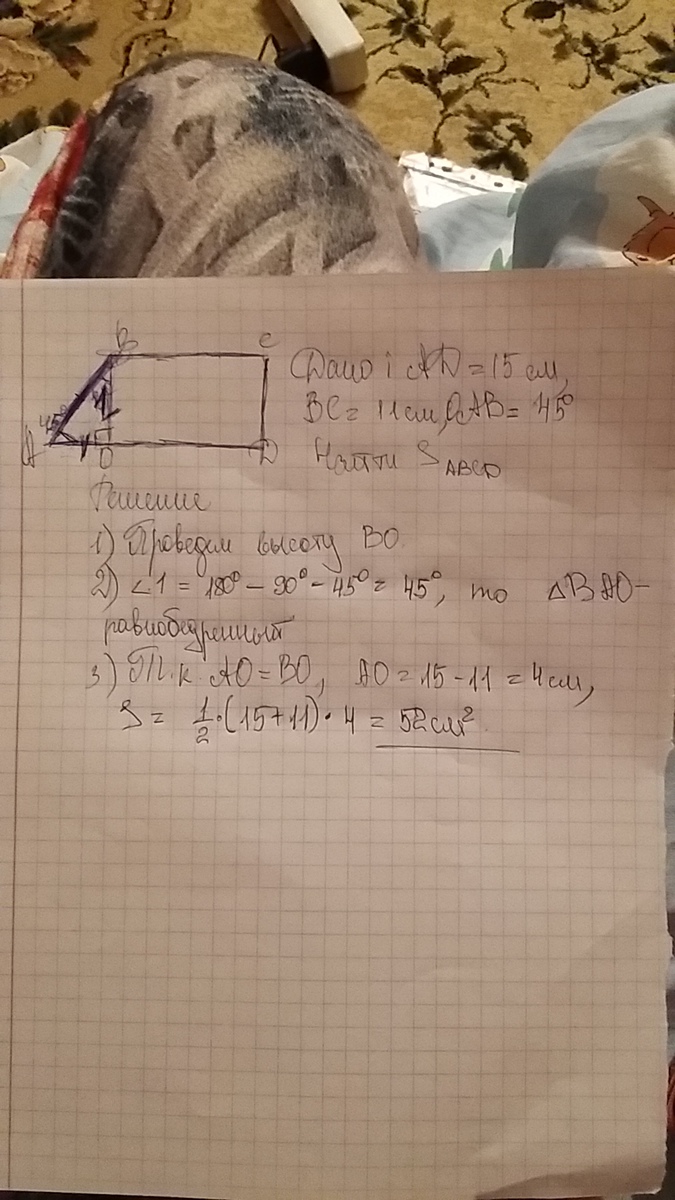 B C
45°
1
A O D
Дано: AD = 15 см,
BC = 11 см, OAB = 45°
Найти S ABCD
Решение
1) Проведем высоту BO.
2) ∠1 = 180° - 90° - 45° = 45°, то △BAO -
равнобедренный
3) Т.к. AO = BO, AO = 15 - 11 = 4 см,
S = 1/2 · (15 + 11) · 4 = 52 см²